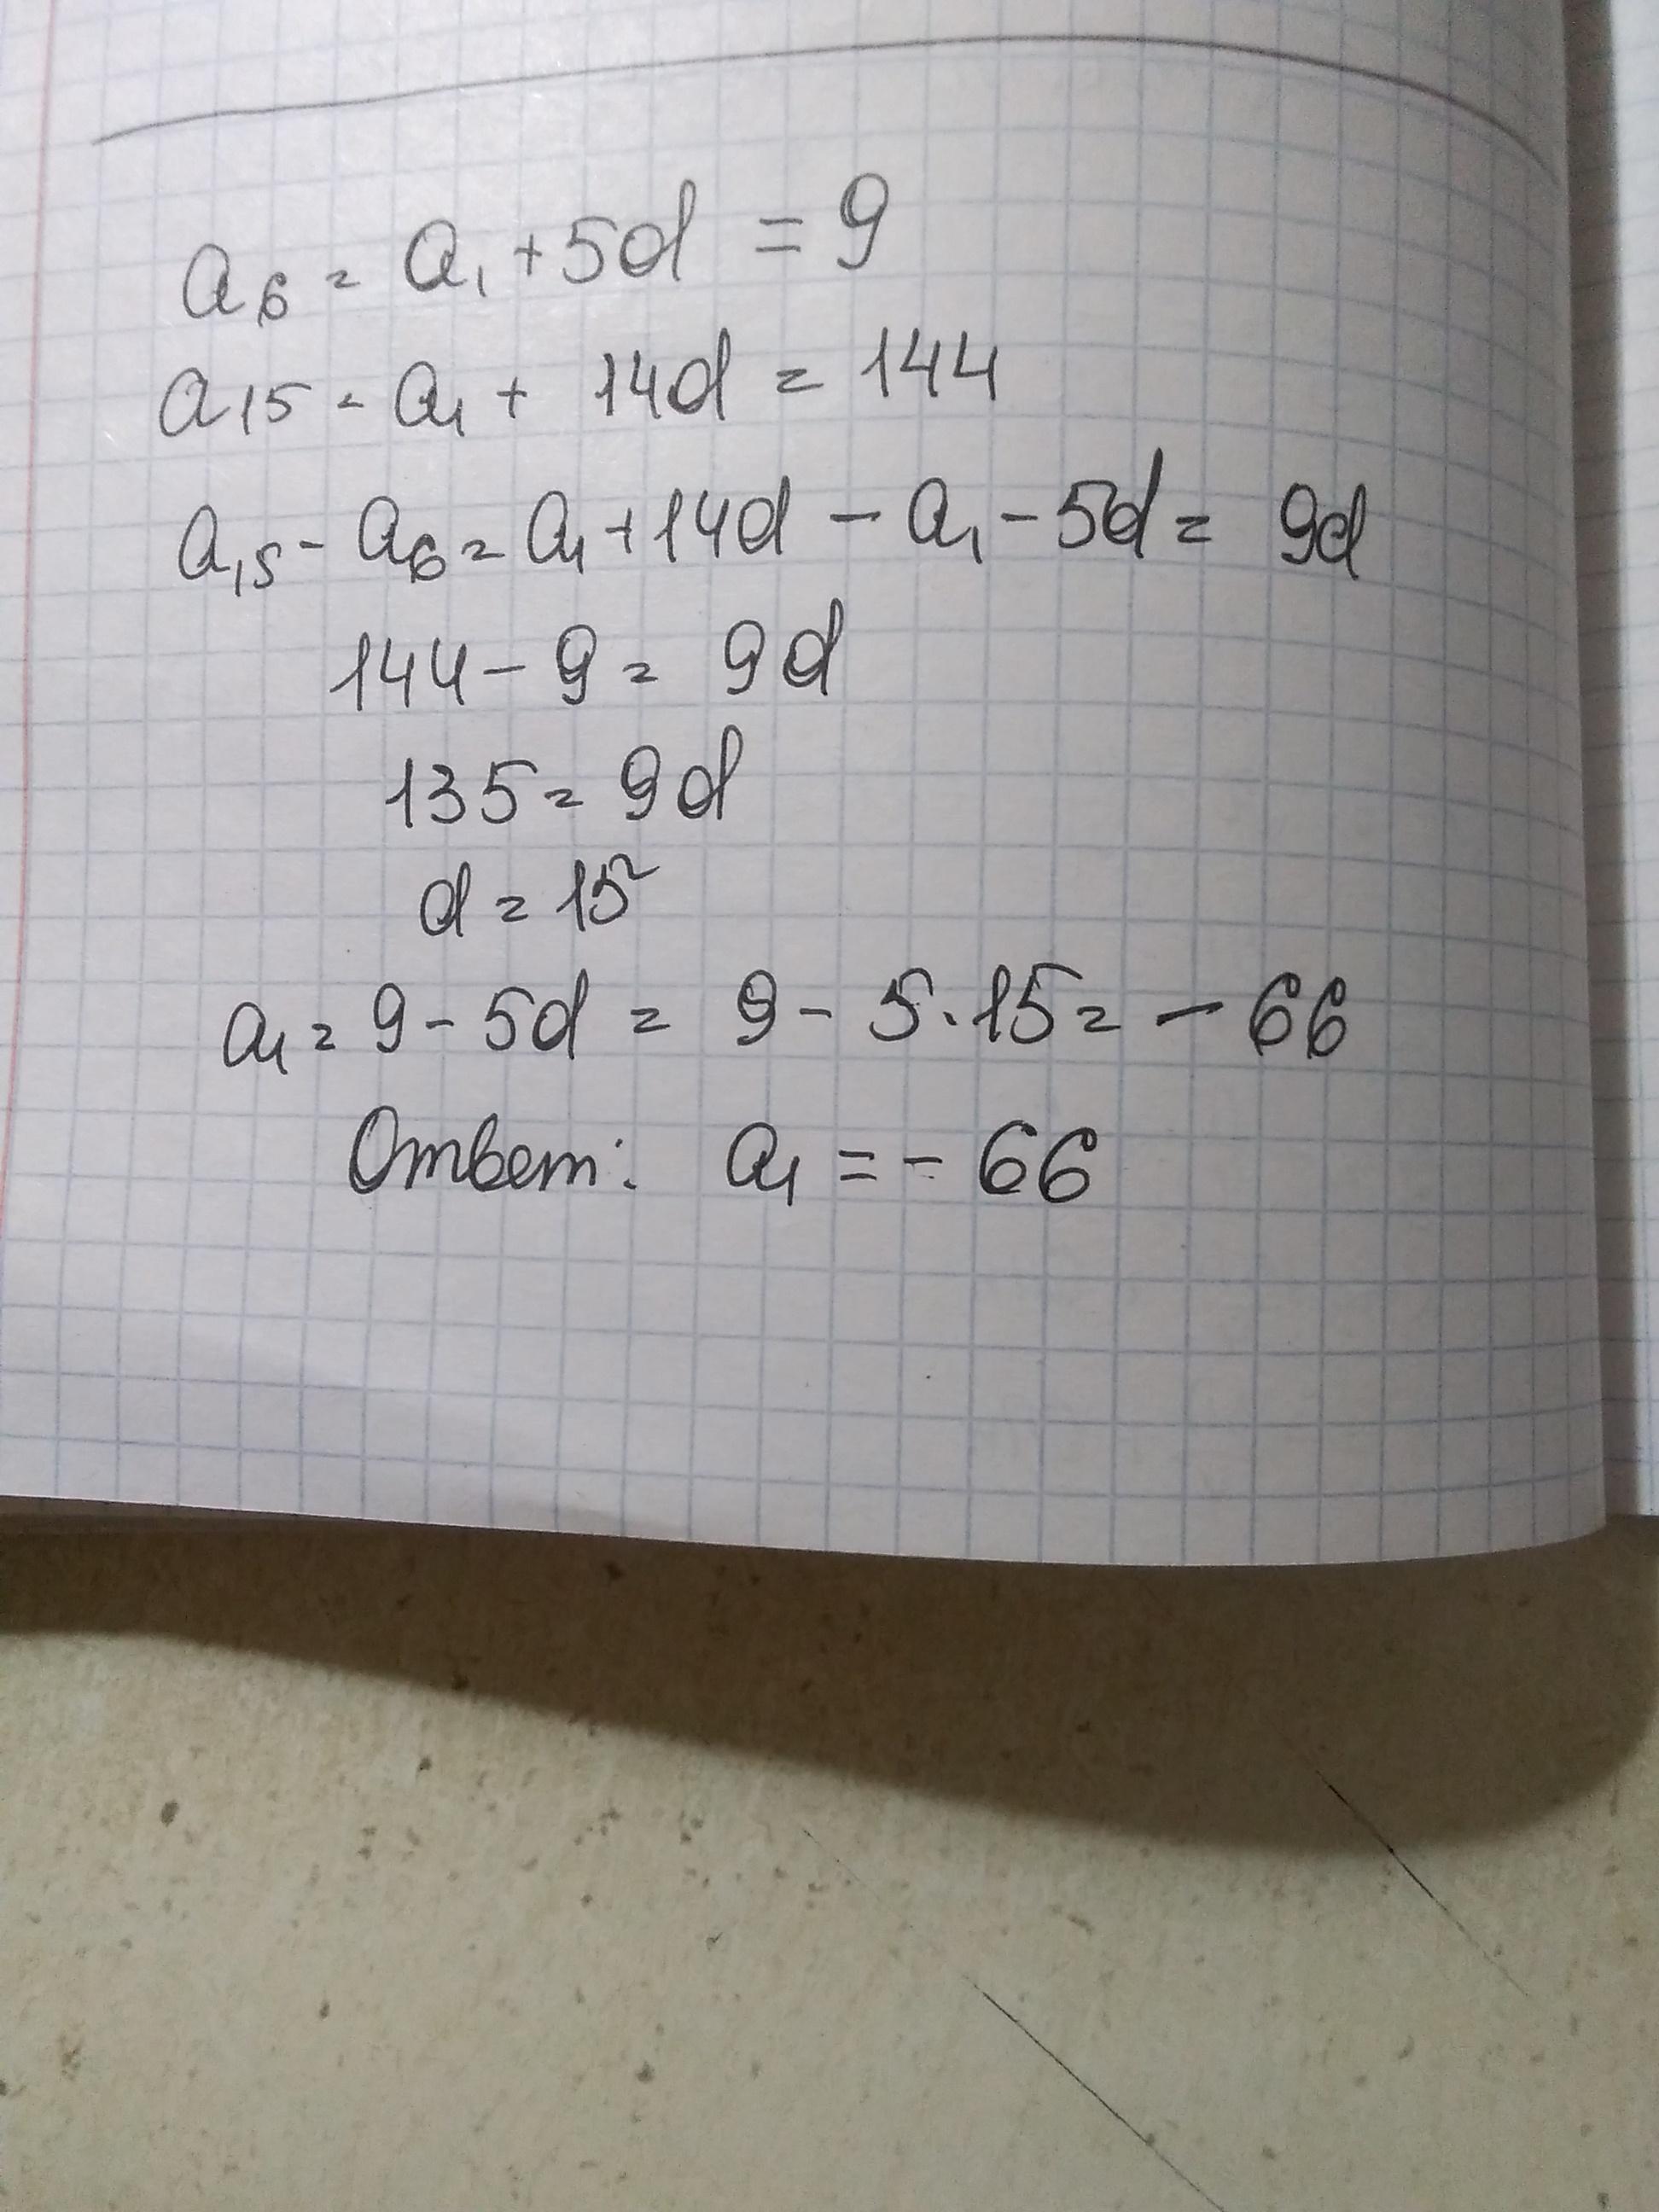 a₆ = a₁ + 5d = 9
a₁₅ = a₁ + 14d = 144
a₁₅ - a₆ = a₁ + 14d - a₁ - 5d = 9d
144 - 9 = 9d
135 = 9d
d = 15
a₁ = 9 - 5d = 9 - 5·15 = - 66
Ответ: a₁ = - 66